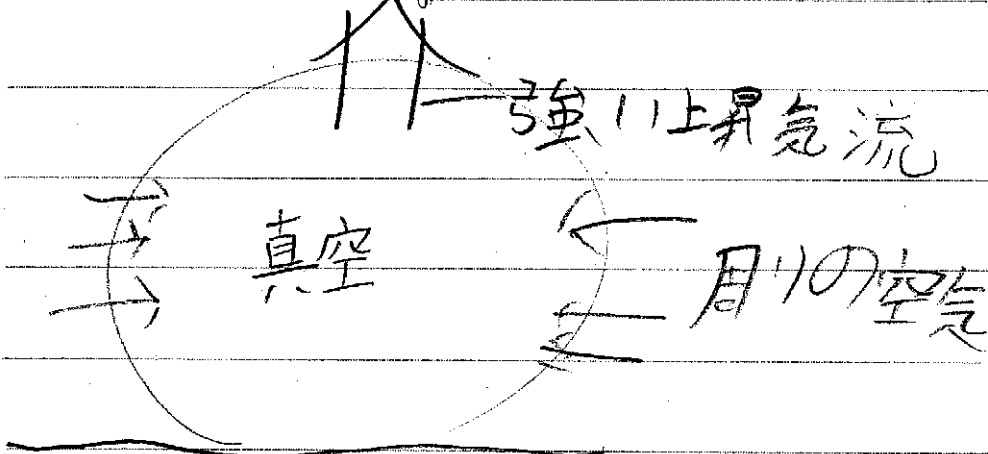 強い上昇気流
真空
周りの空気